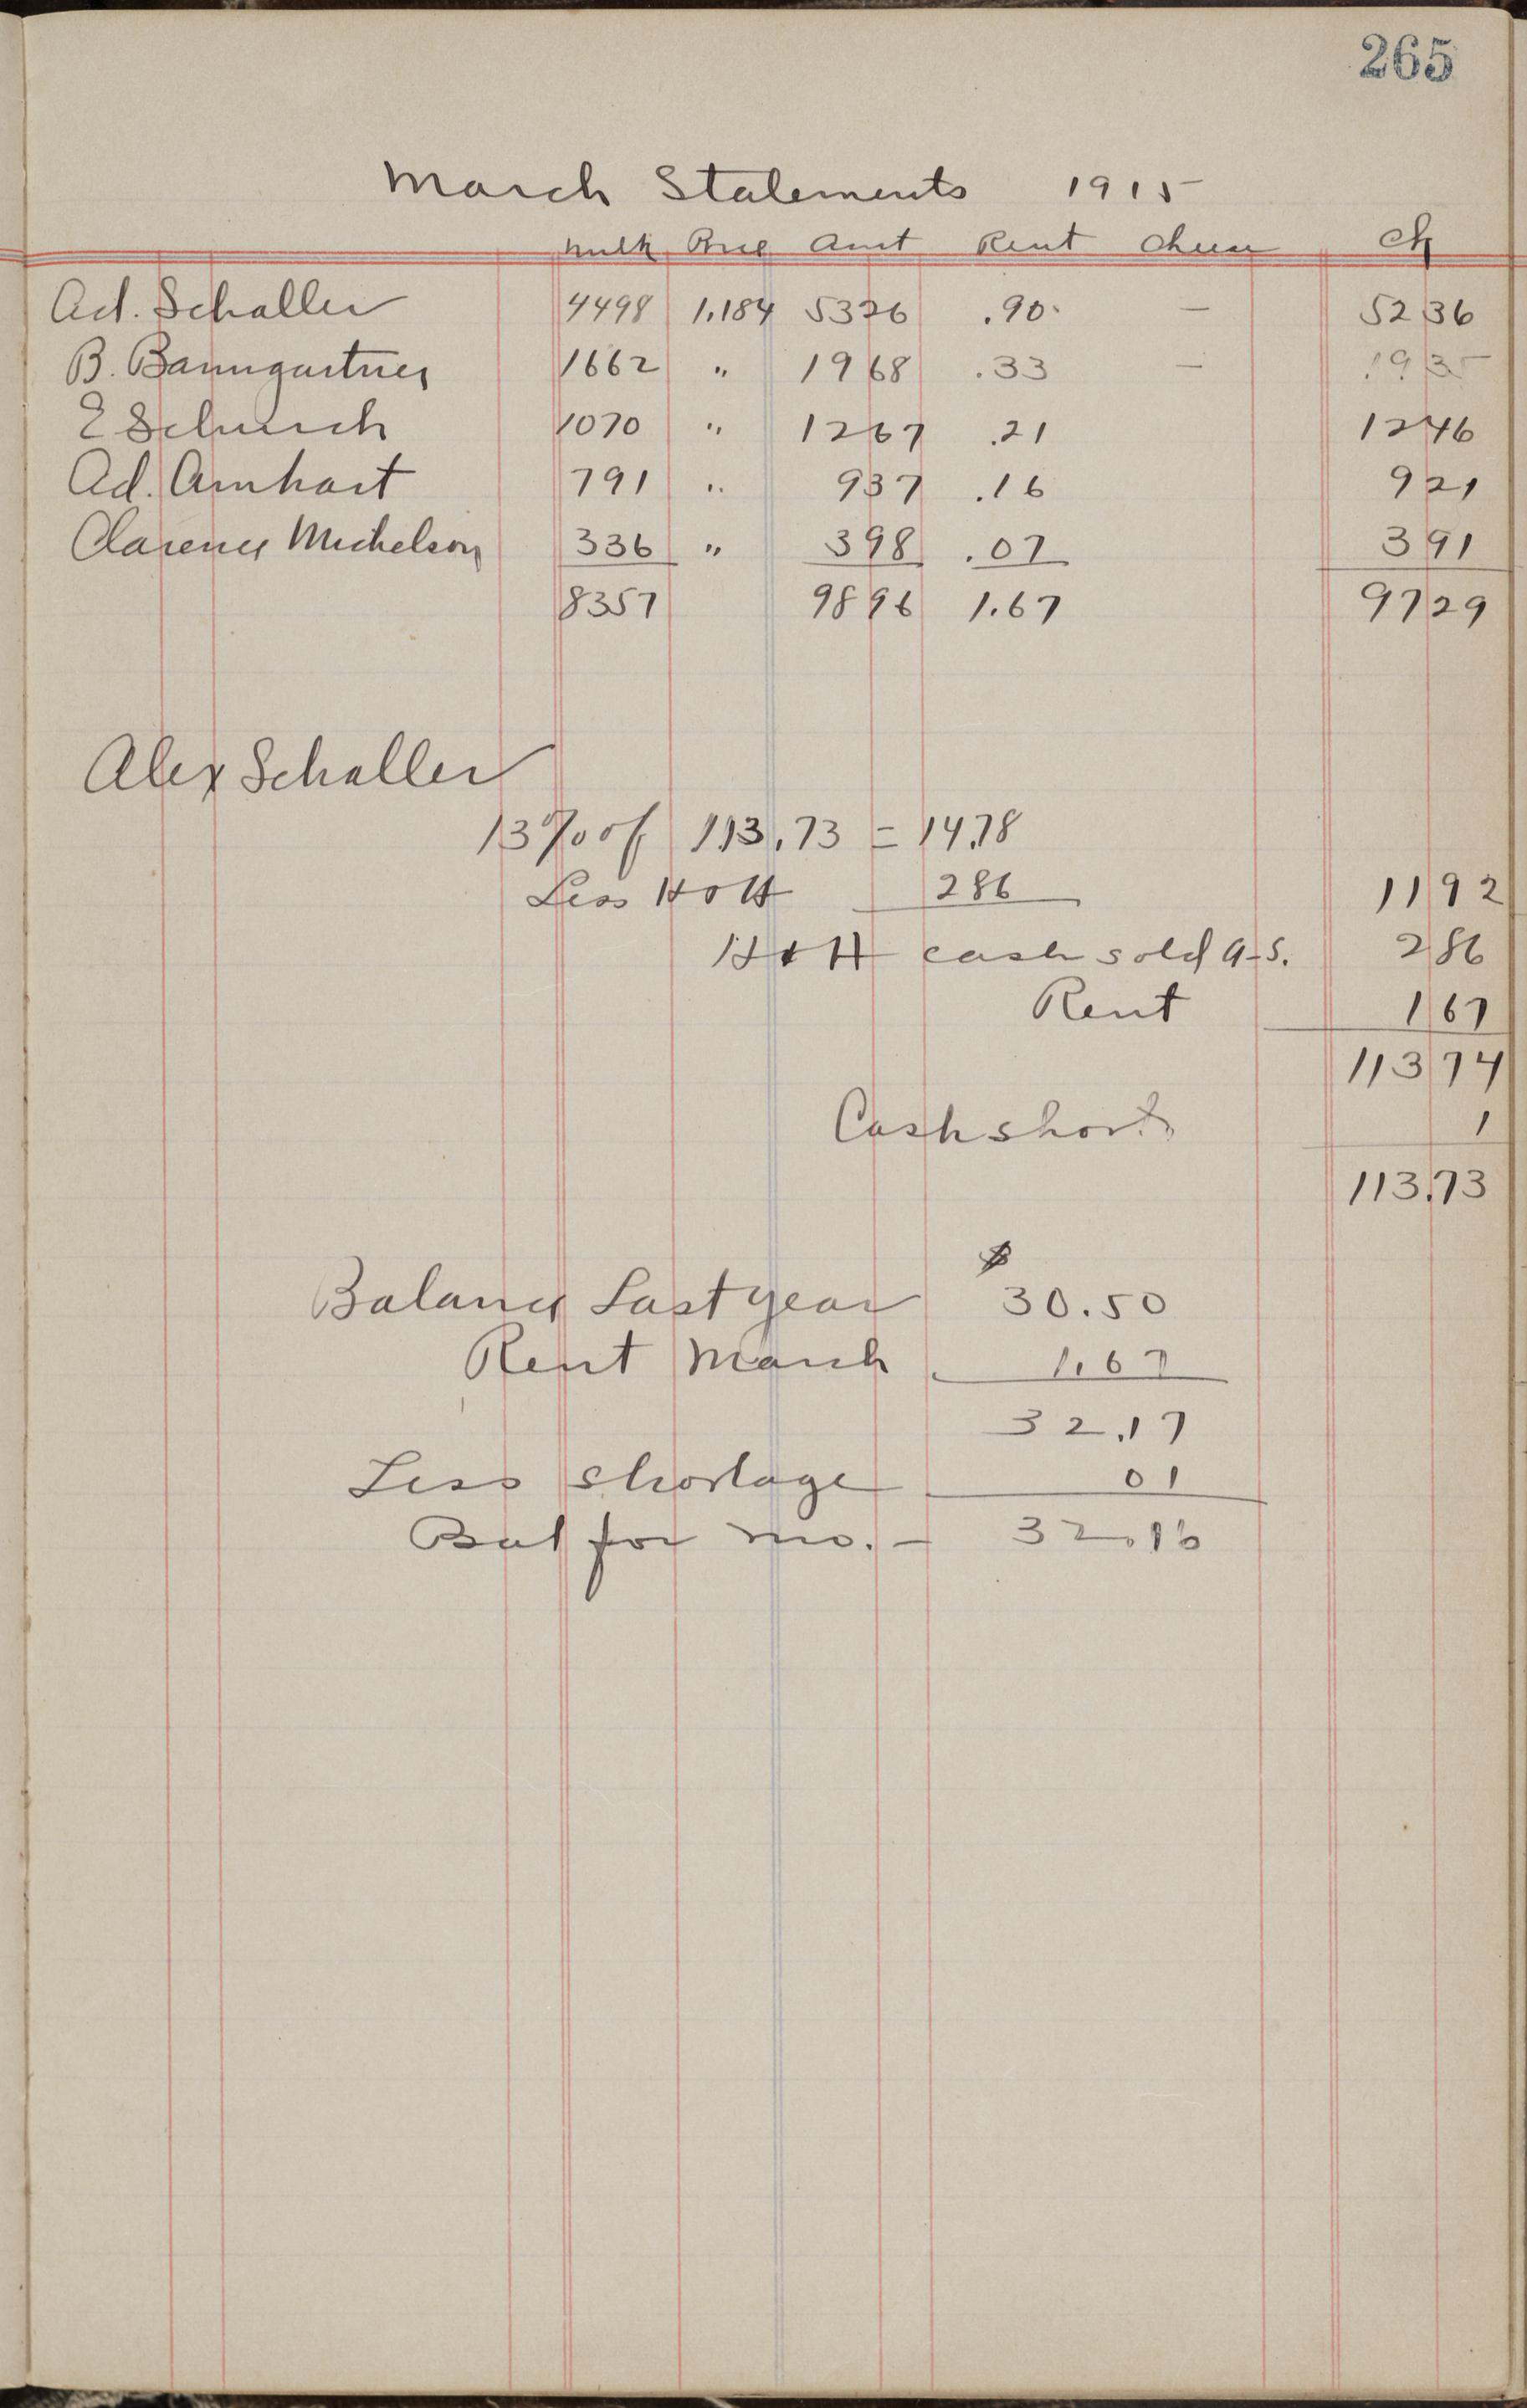 265
March Statements 1915
Milk Price Amt Rent Cheese Ck
Ad. Schaller 4498 1.184 5326 .90 — 5236
B. Baumgartner 1662 " 1968 .33 — 1935
E Schurch 1070 " 1267 .21 1246
Ad. Amhart 791 " 937 .16 921
Clarence Michelson 336 " 398 .07 391
8357 9896 1.67 9729
Alex Schaller
13% of 113.73 = 14.78
Less H & H 286 1192
H & H cash sold A-S. 286
Rent 167
11374
Cash short 1
113.73
$
Balance Last year 30.50
Rent March 1.67
32.17
Less shortage 01
Bal for mo. — 32.16